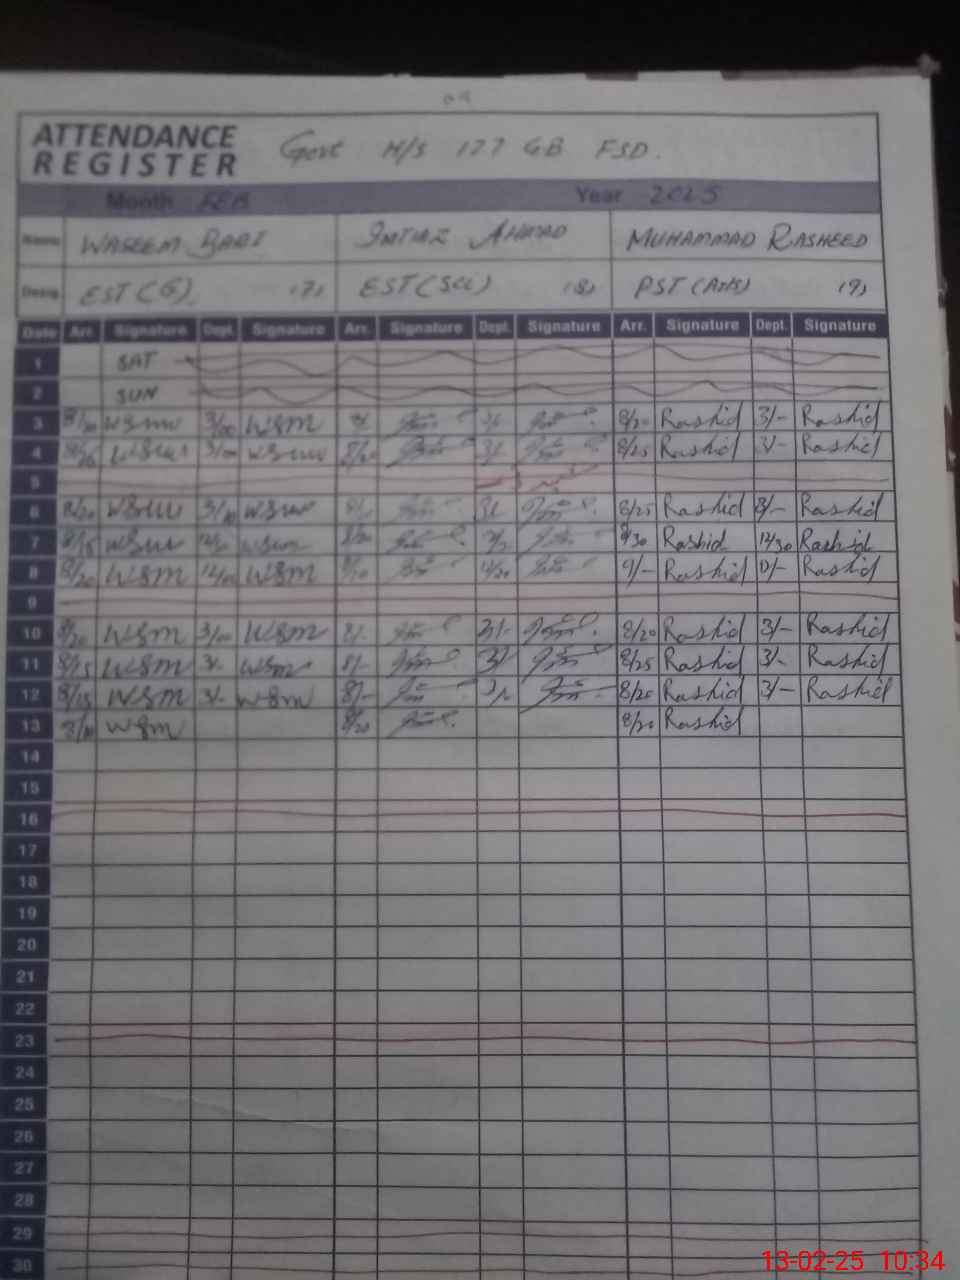 09
ATTENDANCE REGISTER Govt H/S 177 GB FSD.
Month FEB Year 2025
Name WASEEM BARI IMTIAZ AHMAD MUHAMMAD RASHEED
Desig EST (G) (7) EST (SCi) (8) PST (Arts) (9)
Date Arr. Signature Dept. Signature Arr. Signature Dept. Signature Arr. Signature Dept. Signature
1 SAT
2 SUN
3 3/00 WSm 8/20 Rashid 3/- Rashid
4 8/25 Rashid 3/- Rashid
5
6 8/20 8/25 Rashid Rashid
7 8/15 Rashid 12/30 Rashid
8 8/20 WSm 12/00 WSm 12/20 9/- Rashid Rashid
9
10 8/20 WSm 3/00 WSm 8/- 3/- 8/20 Rashid 3/- Rashid
11 8/15 WSm 3/- WSm 8/- 3/ 8/25 Rashid 3/- Rashid
12 8/15 WSm 3/- WSm 8/- 8/20 Rashid 3/- Rashid
13 8/10 WSm 8/20 8/20 Rashid
14
15
16
17
18
19
20
21
22
23
24
25
26
27
28
29
30
13-02-25 10:34